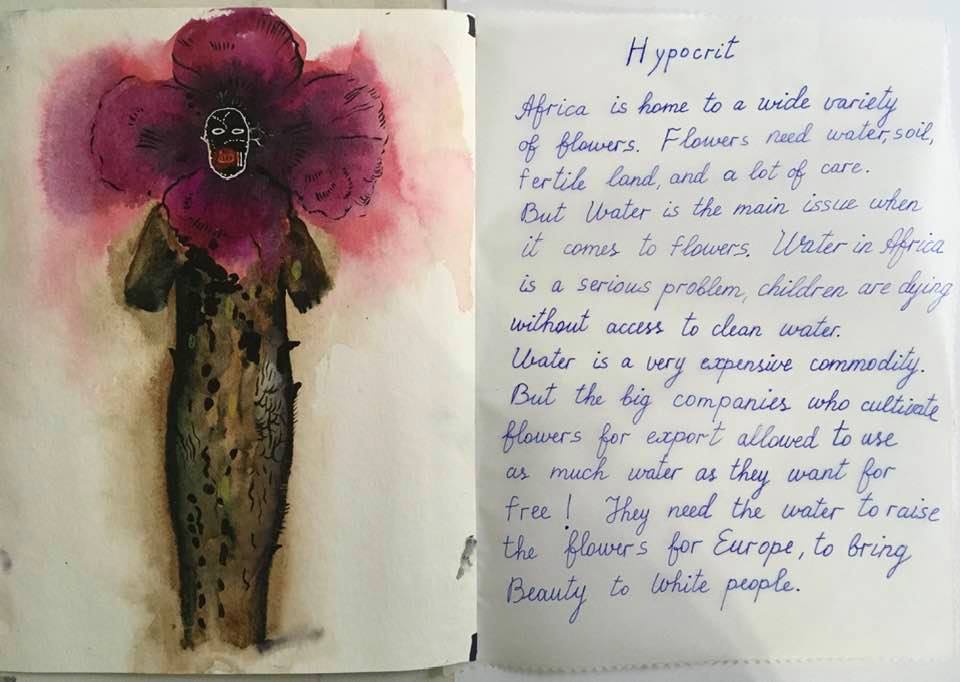 Hypocrit
Africa is home to a wide variety
of flowers. Flowers need water, soil,
fertile land, and a lot of care.
But Water is the main issue when
it comes to flowers. Water in Africa
is a serious problem, children are dying
without access to clean water.
Water is a very expensive commodity.
But the big companies who cultivate
flowers for export allowed to use
as much water as they want for
free! They need the water to raise
the flowers for Europe, to bring
Beauty to White people.